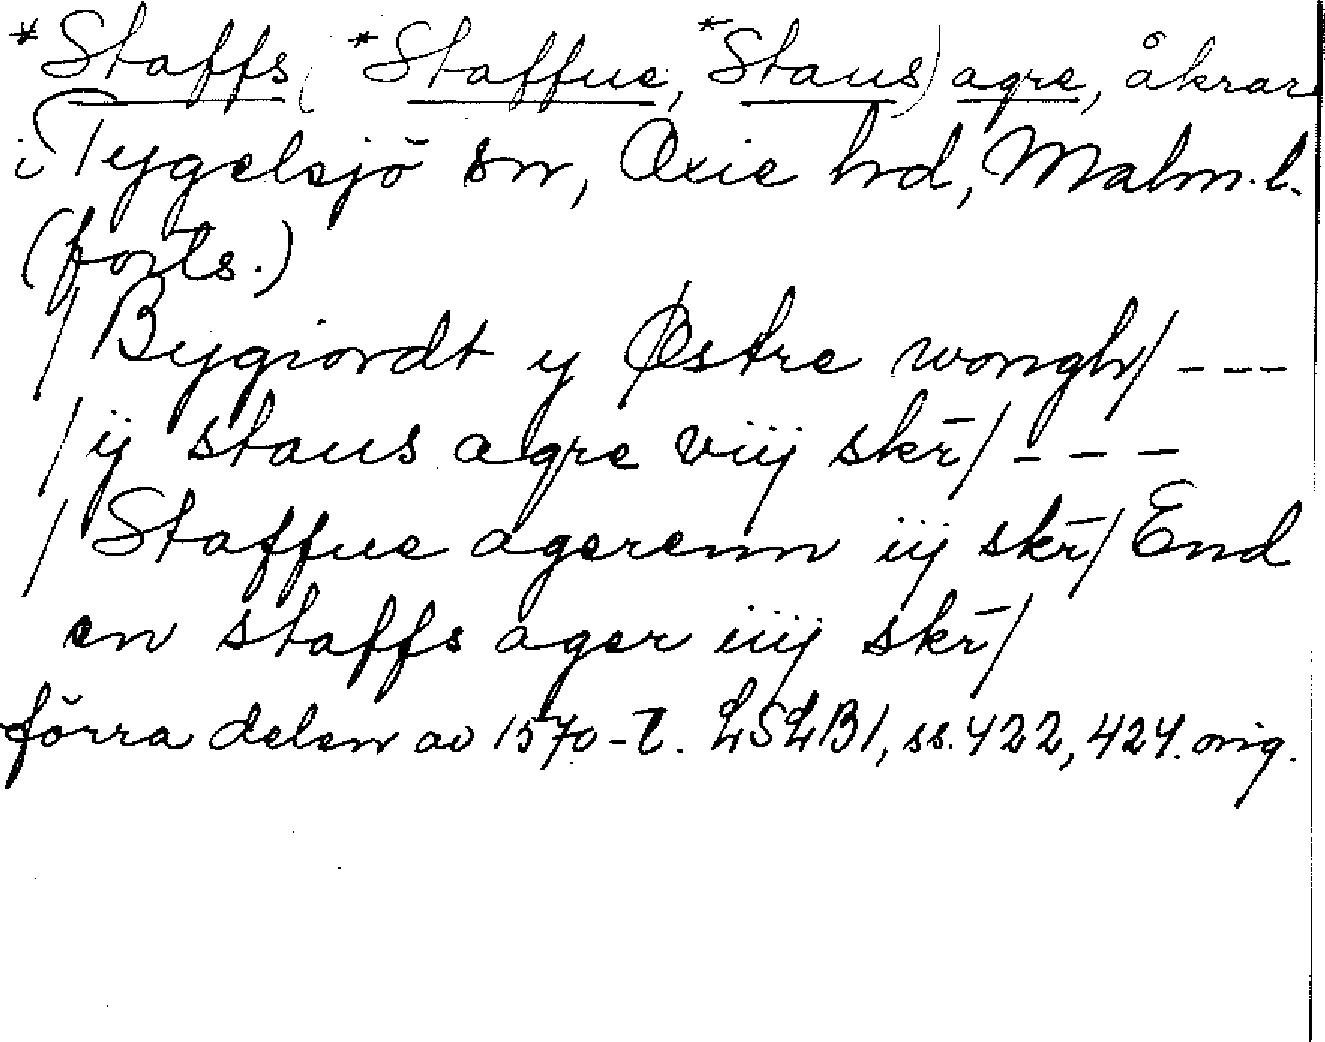 *Staffs (*Staffue, *Staus) agre, åkrar
i Tygelsjö sn, Oxie hd, Malm. l.
(forts.)
/ Bygiordt y Østre wongh/ ---
/ ij staus agre viij skr̄/ ---
/ Staffue agerenn iij skr̄/ End
en staffs ager iiij skr̄/
förra delen av 1570-t. LSLB1, ss. 422, 424. orig.